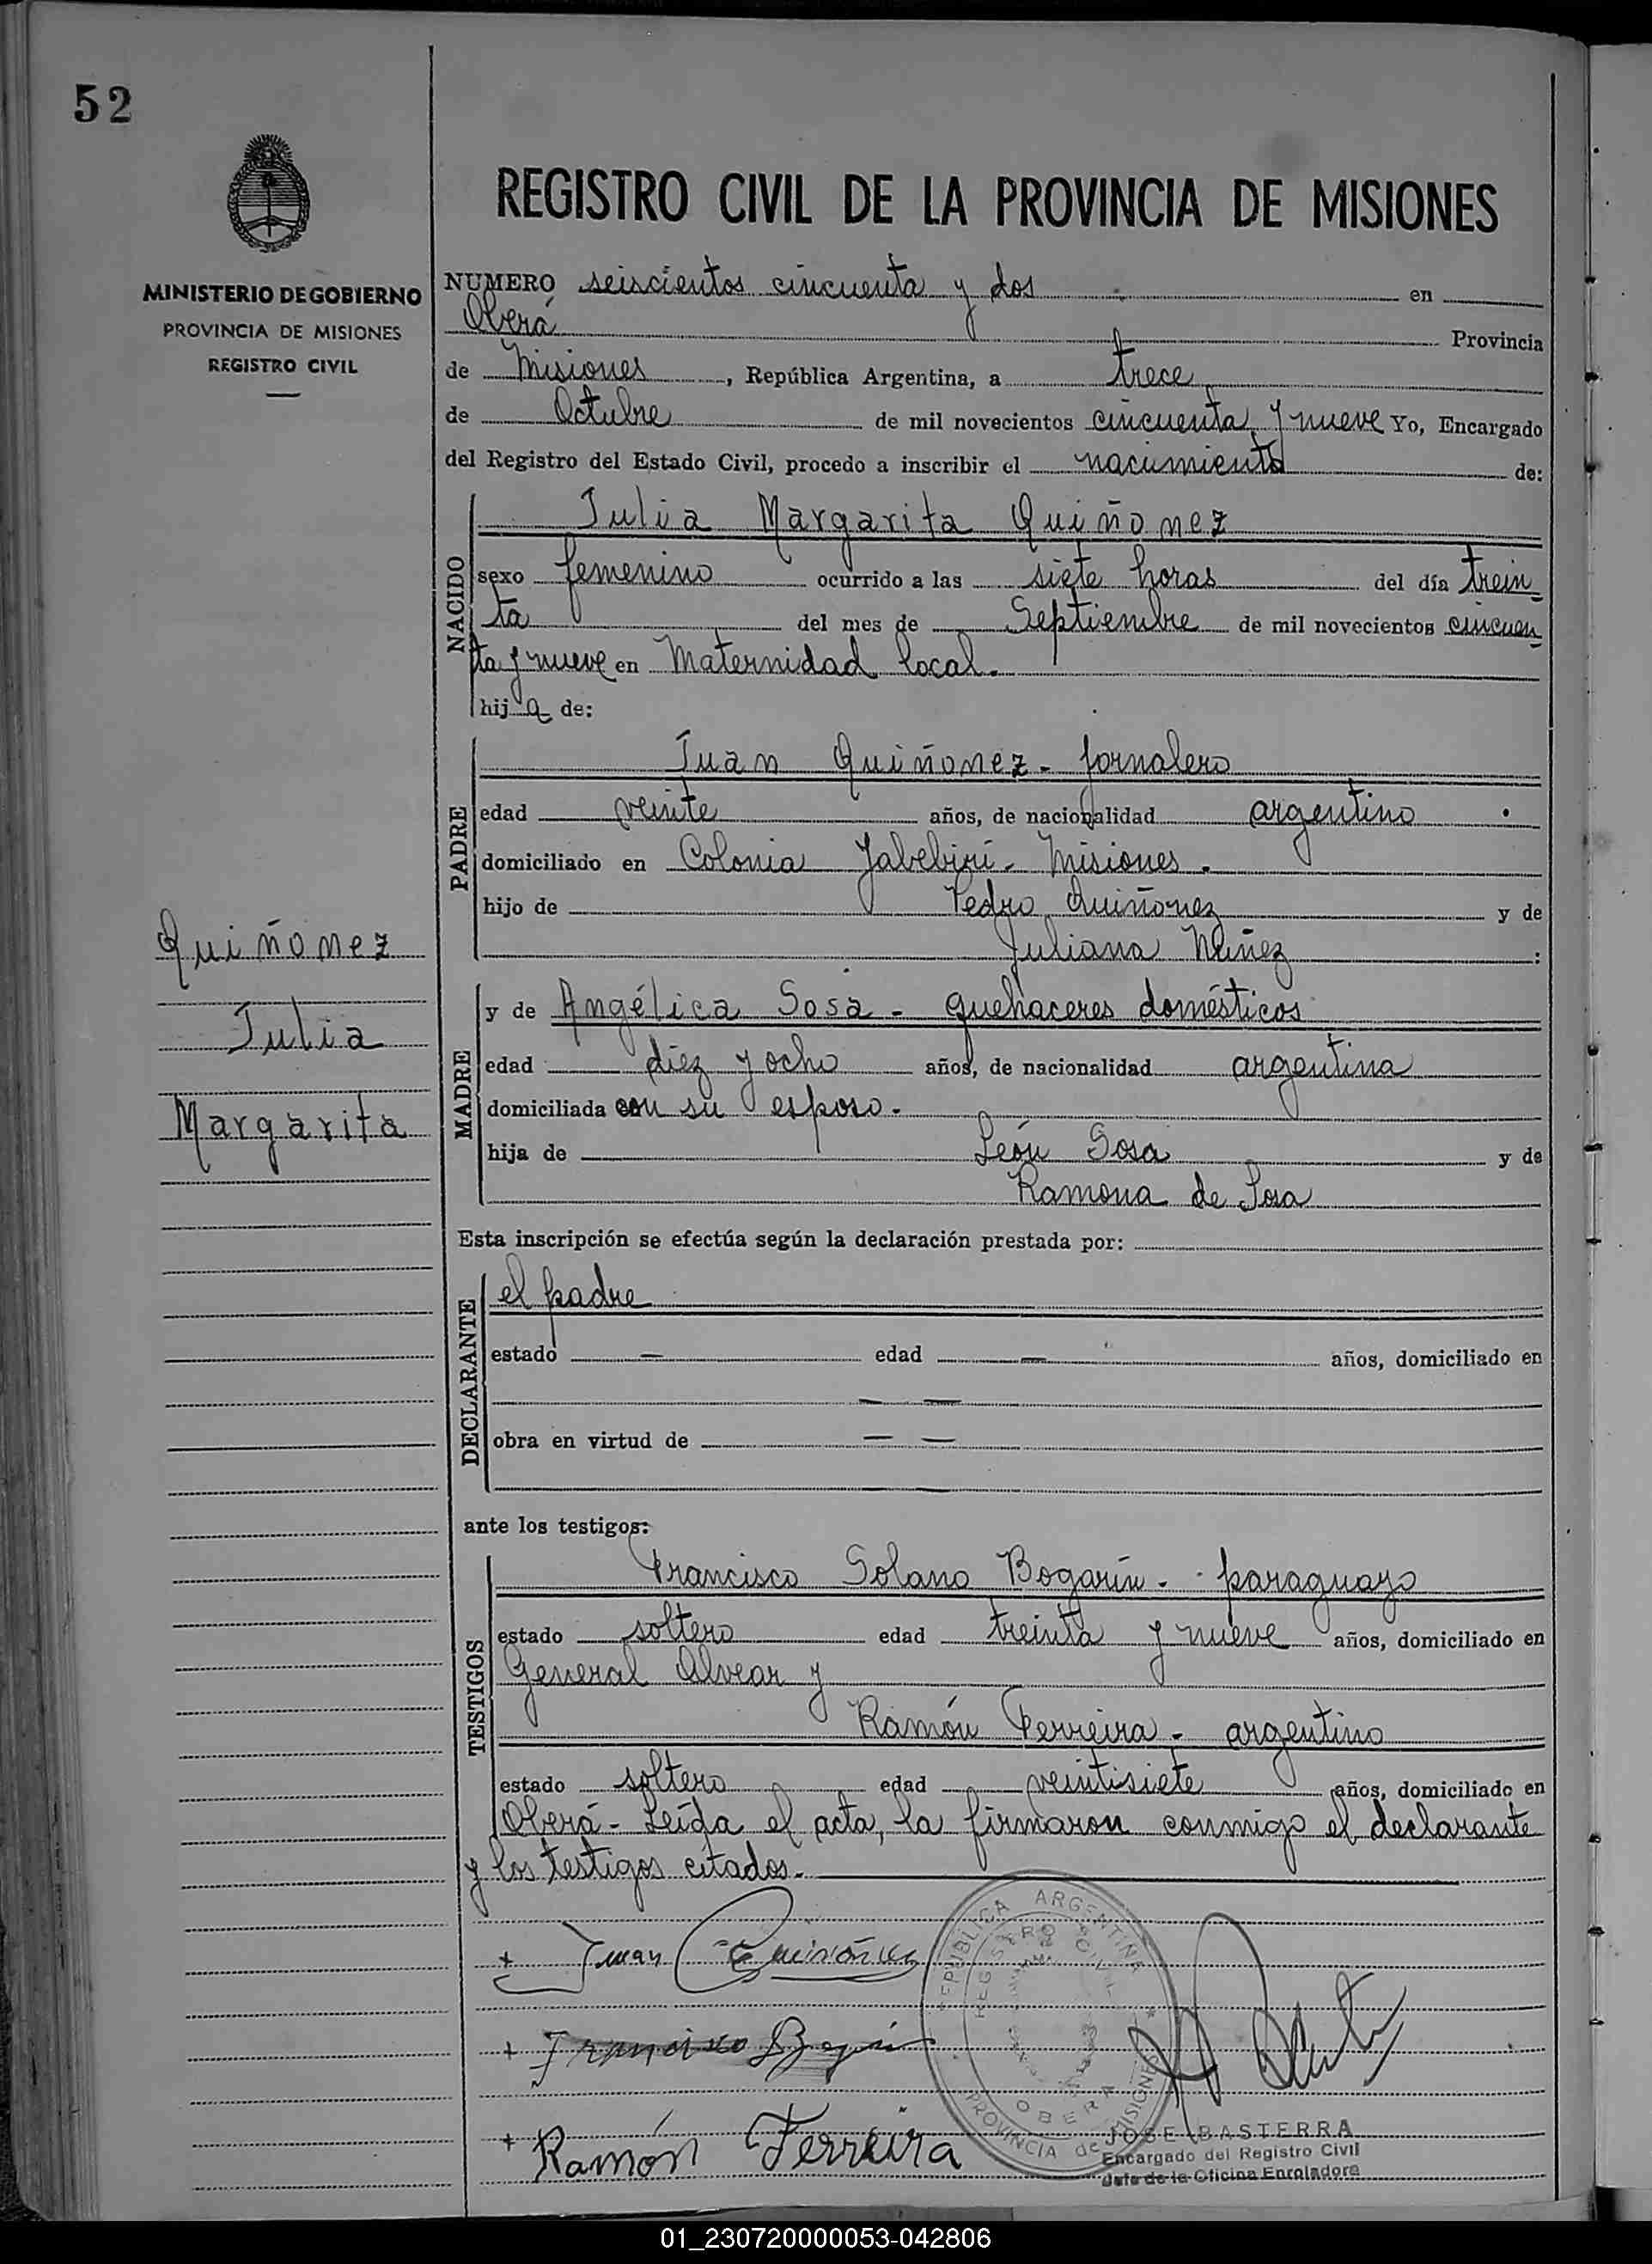 52
MINISTERIO DE GOBIERNO
PROVINCIA DE MISIONES
REGISTRO CIVIL
Quiñonez
Julia
Margarita
REGISTRO CIVIL DE LA PROVINCIA DE MISIONES
NUMERO seiscientos cincuenta y dos en
Oberá Provincia
de Misiones, República Argentina, a trece
de Octubre de mil novecientos cincuenta y nueve Yo, Encargado
del Registro del Estado Civil, procedo a inscribir el nacimiento de:
NACIDO
Julia Margarita Quiñonez
sexo femenino ocurrido a las siete horas del día trein_
ta del mes de Septiembre de mil novecientos cincuen_
ta y nueve en Maternidad local.
hija de:
PADRE
Juan Quiñonez - jornalero
edad veinte años, de nacionalidad argentino
domiciliado en Colonia Yabebirí - Misiones.
hijo de Pedro Quiñonez y de
Juliana Núñez :
MADRE
y de Angélica Sosa - quehaceres domésticos
edad diez y ocho años, de nacionalidad argentina
domiciliada con su esposo.
hija de León Sosa y de
Ramona de Sosa
Esta inscripción se efectúa según la declaración prestada por:
DECLARANTE
el padre
estado — edad — años, domiciliado en
— —
obra en virtud de — —
ante los testigos:
TESTIGOS
Francisco Solano Bogarín - paraguayo
estado soltero edad treinta y nueve años, domiciliado en
General Alvear y
Ramón Ferreira - argentino
estado soltero edad veintisiete años, domiciliado en
Oberá - Leída el acta, la firmaron conmigo el declarante
y los testigos citados.
+ Juan Quiñónez
+ Francisco Bogarín
+ Ramón Ferreira
REPÚBLICA ARGENTINA
REGISTRO CIVIL
OBERA
PROVINCIA de MISIONES
JOSE BASTERRA
Encargado del Registro Civil
Jefe de la Oficina Enroladora
01_230720000053-042806